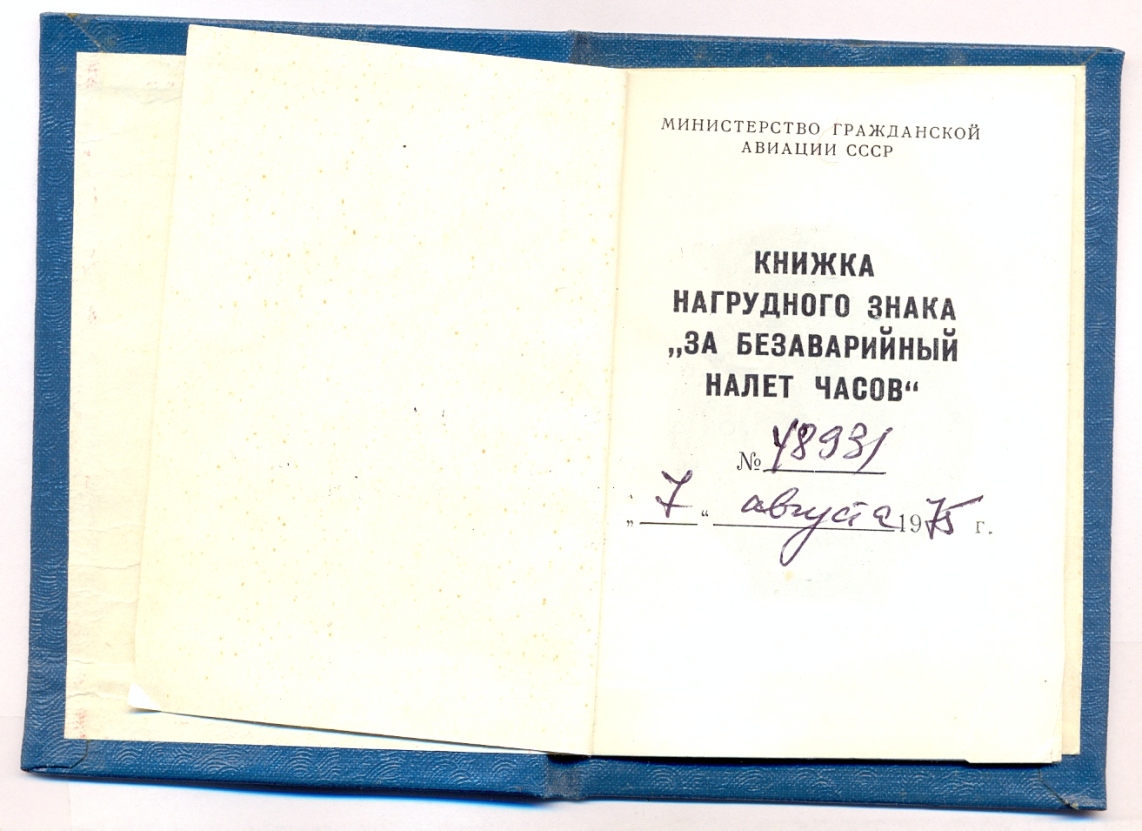 МИНИСТЕРСТВО ГРАЖДАНСКОЙ
АВИАЦИИ СССР
КНИЖКА
НАГРУДНОГО ЗНАКА
„ЗА БЕЗАВАРИЙНЫЙ
НАЛЕТ ЧАСОВ“
№ 48931
„7“ августа 1975 г.